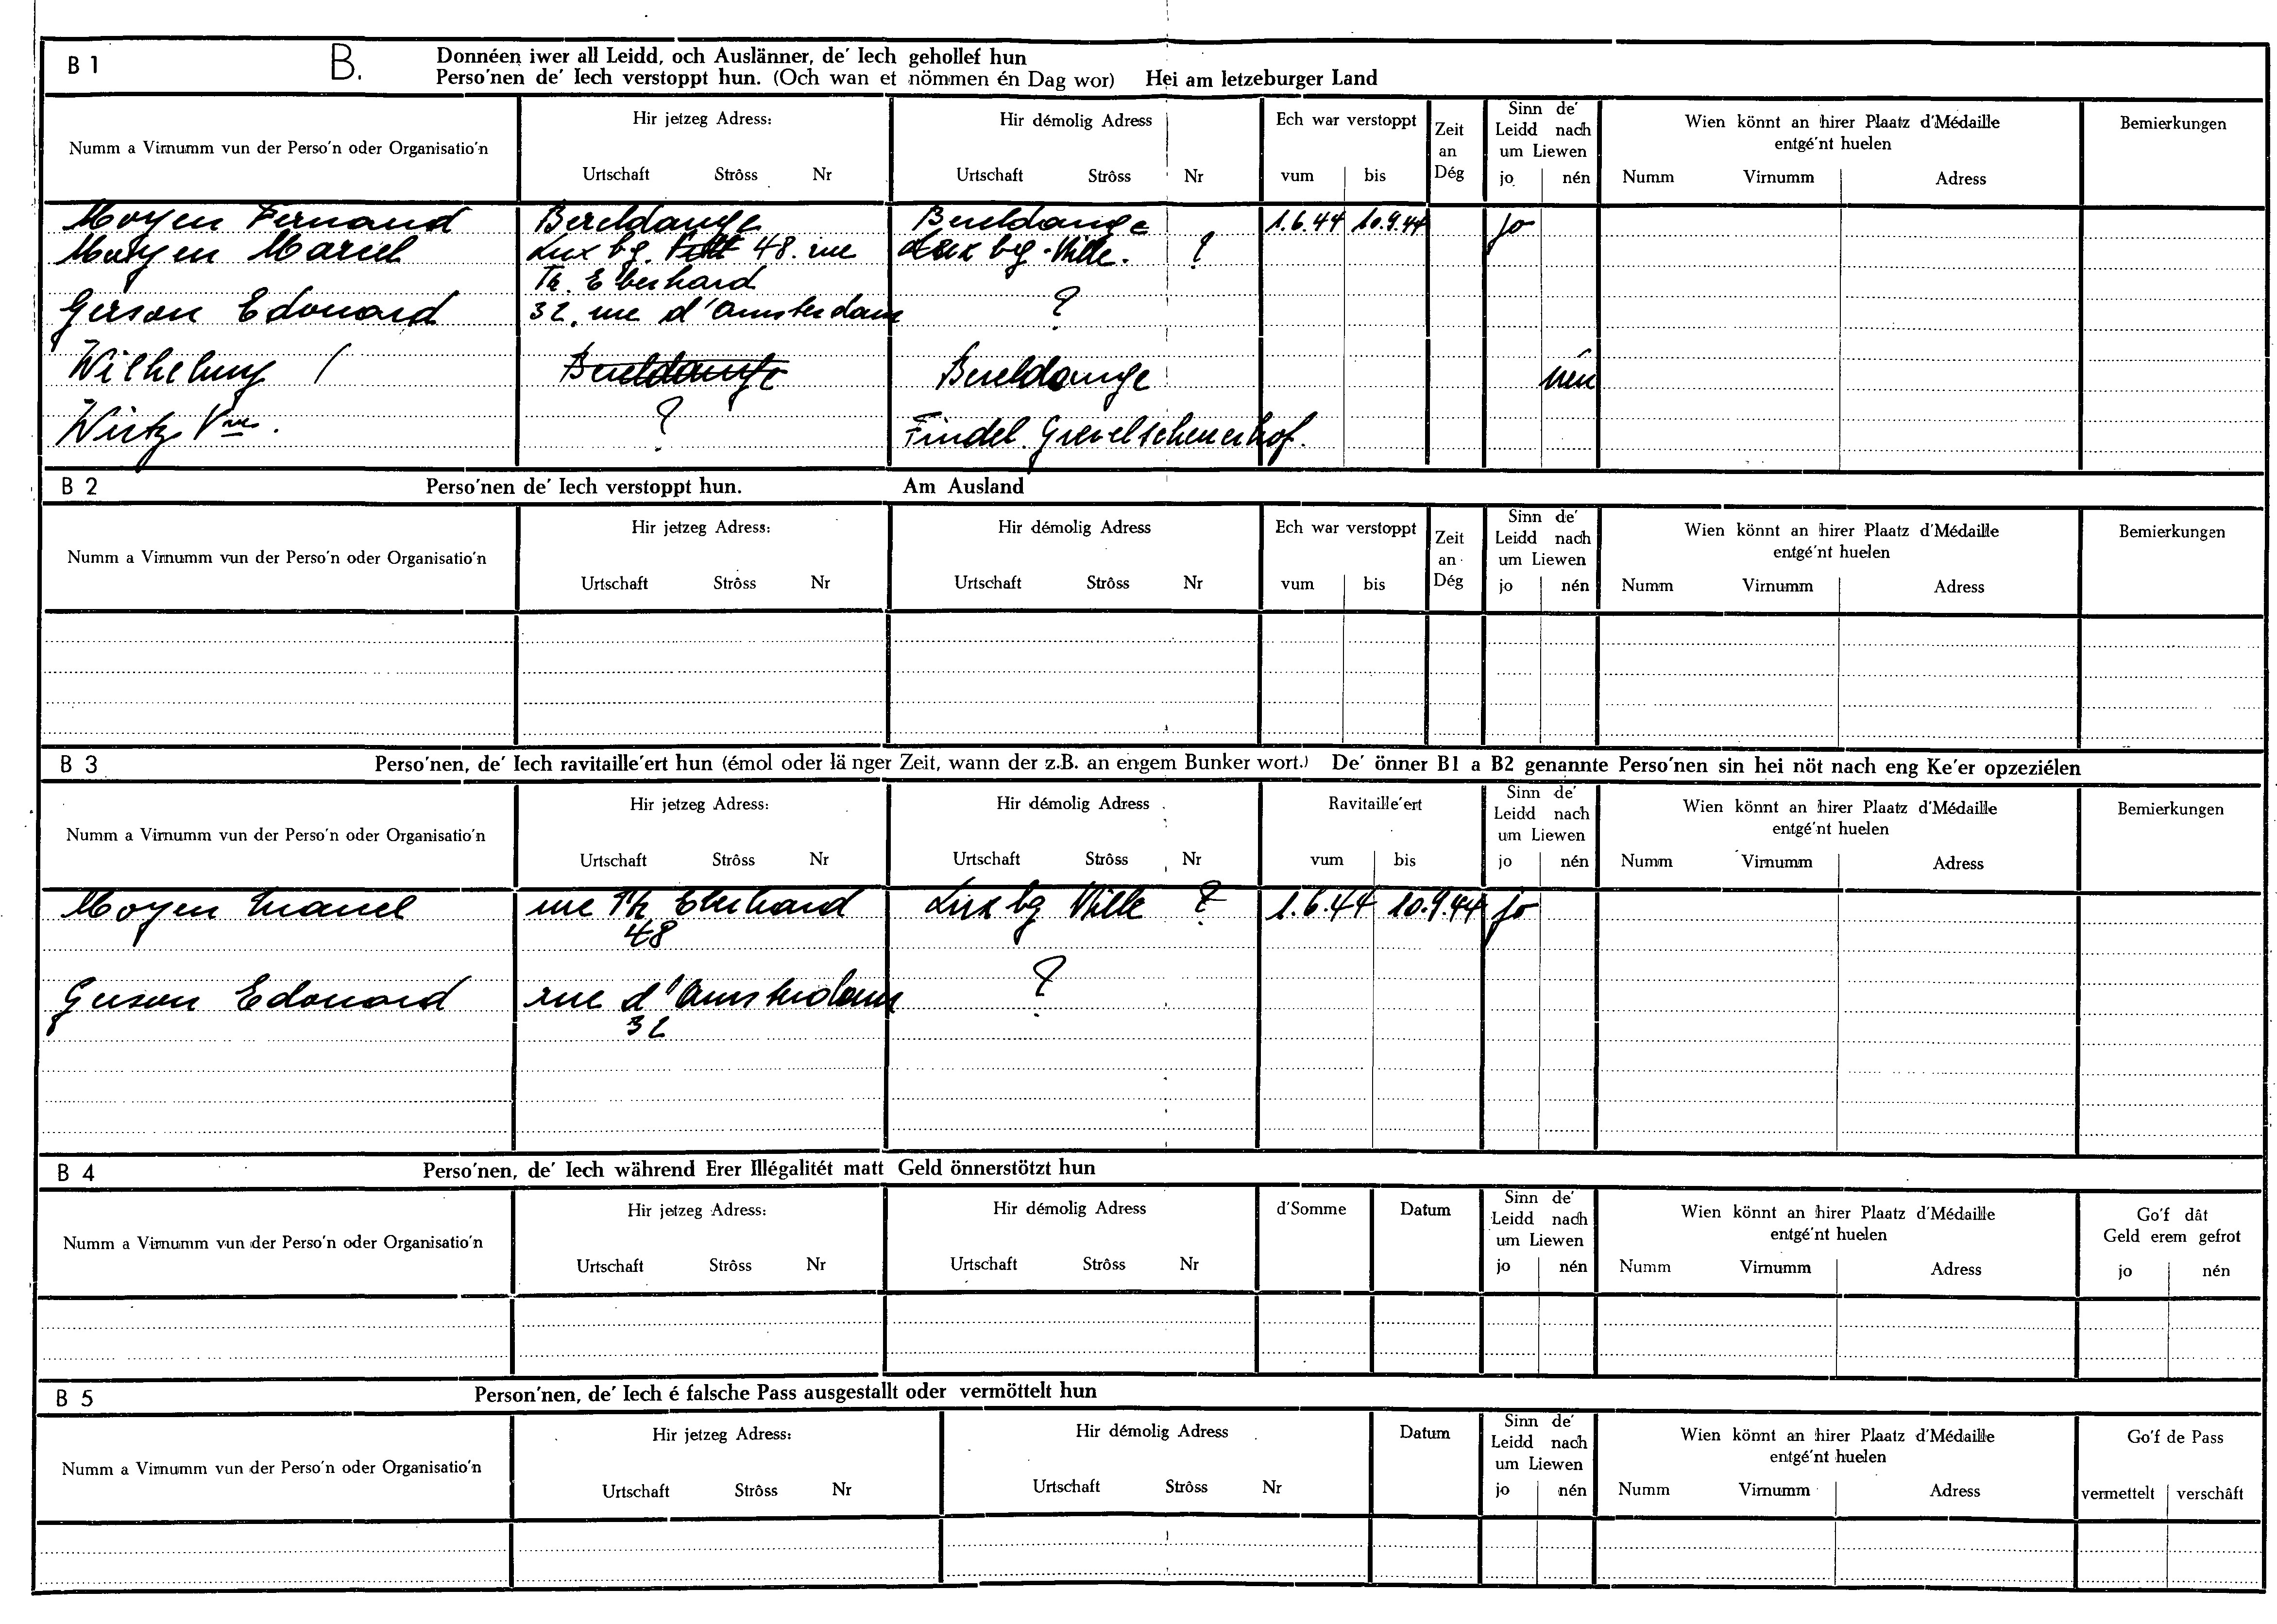 B 1 B. Donnéen iwer all Leidd, och Auslänner, de' Iech gehollef hun
Perso'nen de' Iech verstoppt hun. (Och wan et nömmen én Dag wor) Hei am letzeburger Land
Numm a Virnumm vun der Perso'n oder Organisatio'n
Hir jetzeg Adress:
Urtschaft Strôss Nr
Hir démolig Adress
Urtschaft Strôss Nr
Ech war verstoppt
vum bis
Zeit
an
Dég
Sinn de'
Leidd nach
um Liewen
jo nén
Wien könnt an hirer Plaatz d'Médaille
entgé'nt huelen
Numm Virnumm Adress
Bemierkungen
Moyen Fernand Bereldange Bereldange 1.6.44 10.9.44 jo
Moyen Marcel Lux bg. 48. rue Lux bg-Ville. ?
Th. Eberhard
Gerson Edouard 32, rue d'Amsterdam ?
Wilhelmy / Bereldange Bereldange nén
Wirtz Vve. ? Findel. Grevelscheuerhof.
B 2 Perso'nen de' Iech verstoppt hun. Am Ausland
Numm a Virnumm vun der Perso'n oder Organisatio'n
Hir jetzeg Adress:
Urtschaft Strôss Nr
Hir démolig Adress
Urtschaft Strôss Nr
Ech war verstoppt
vum bis
Zeit
an
Dég
Sinn de'
Leidd nach
um Liewen
jo nén
Wien könnt an hirer Plaatz d'Médaille
entgé'nt huelen
Numm Virnumm Adress
Bemierkungen
B 3 Perso'nen, de' Iech ravitaille'ert hun (émol oder länger Zeit, wann der z.B. an engem Bunker wort.) De' önner B1 a B2 genannte Perso'nen sin hei nöt nach eng Ke'er opzeziélen
Numm a Virnumm vun der Perso'n oder Organisatio'n
Hir jetzeg Adress:
Urtschaft Strôss Nr
Hir démolig Adress
Urtschaft Strôss Nr
Ravitaille'ert
vum bis
Sinn de'
Leidd nach
um Liewen
jo nén
Wien könnt an hirer Plaatz d'Médaille
entgé'nt huelen
Numm Virnumm Adress
Bemierkungen
Moyen Marcel rue Th Eberhard Lux bg Ville ? 1.6.44 10.9.44 jo
48
Gerson Edouard rue d'Amsterdam ?
32
B 4 Perso'nen, de' Iech während Erer Illégalitét matt Geld önnerstötzt hun
Numm a Virnumm vun der Perso'n oder Organisatio'n
Hir jetzeg Adress:
Urtschaft Strôss Nr
Hir démolig Adress
Urtschaft Strôss Nr
d'Somme
Datum
Sinn de'
Leidd nach
um Liewen
jo nén
Wien könnt an hirer Plaatz d'Médaille
entgé'nt huelen
Numm Virnumm Adress
Go'f dât
Geld erem gefrot
jo nén
B 5 Person'nen, de' Iech é falsche Pass ausgestallt oder vermöttelt hun
Numm a Virnumm vun der Perso'n oder Organisatio'n
Hir jetzeg Adress:
Urtschaft Strôss Nr
Hir démolig Adress
Urtschaft Strôss Nr
Datum
Sinn de'
Leidd nach
um Liewen
jo nén
Wien könnt an hirer Plaatz d'Médaille
entgé'nt huelen
Numm Virnumm Adress
Go'f de Pass
vermettelt verschâft